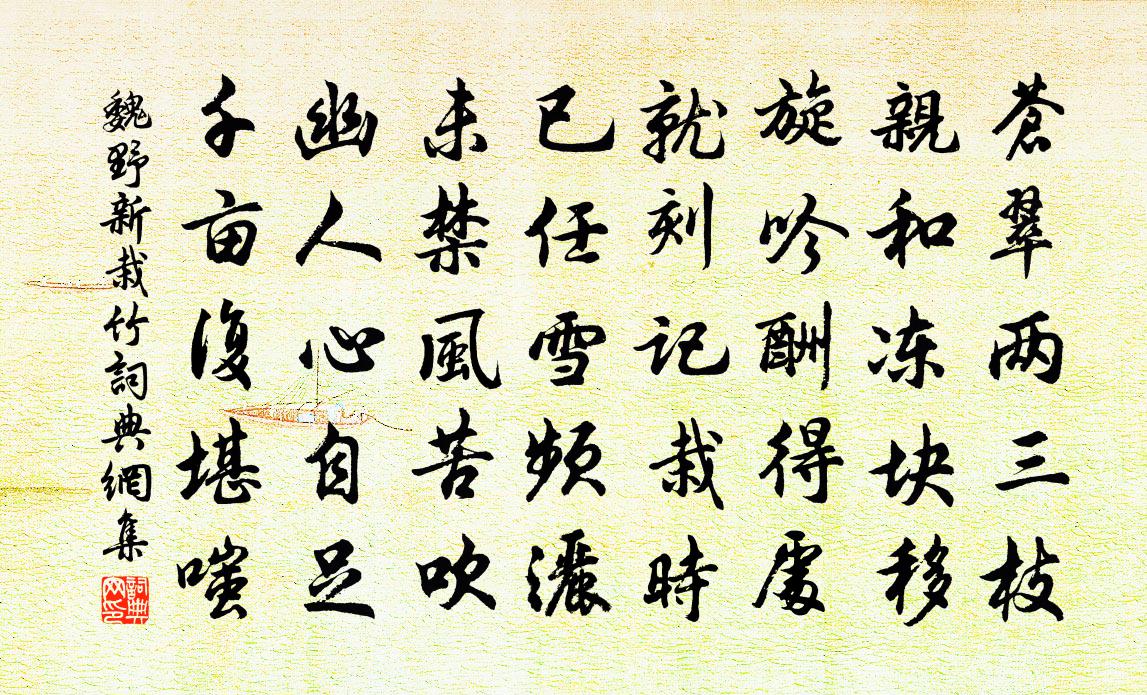 蒼翠两三枝
親和冻块移
旋吟酬得處
就刻记栽時
已任雪頻灑
未禁風苦吹
幽人心自足
千亩復堪嗤
魏野新栽竹詞典網集
詞典
网印